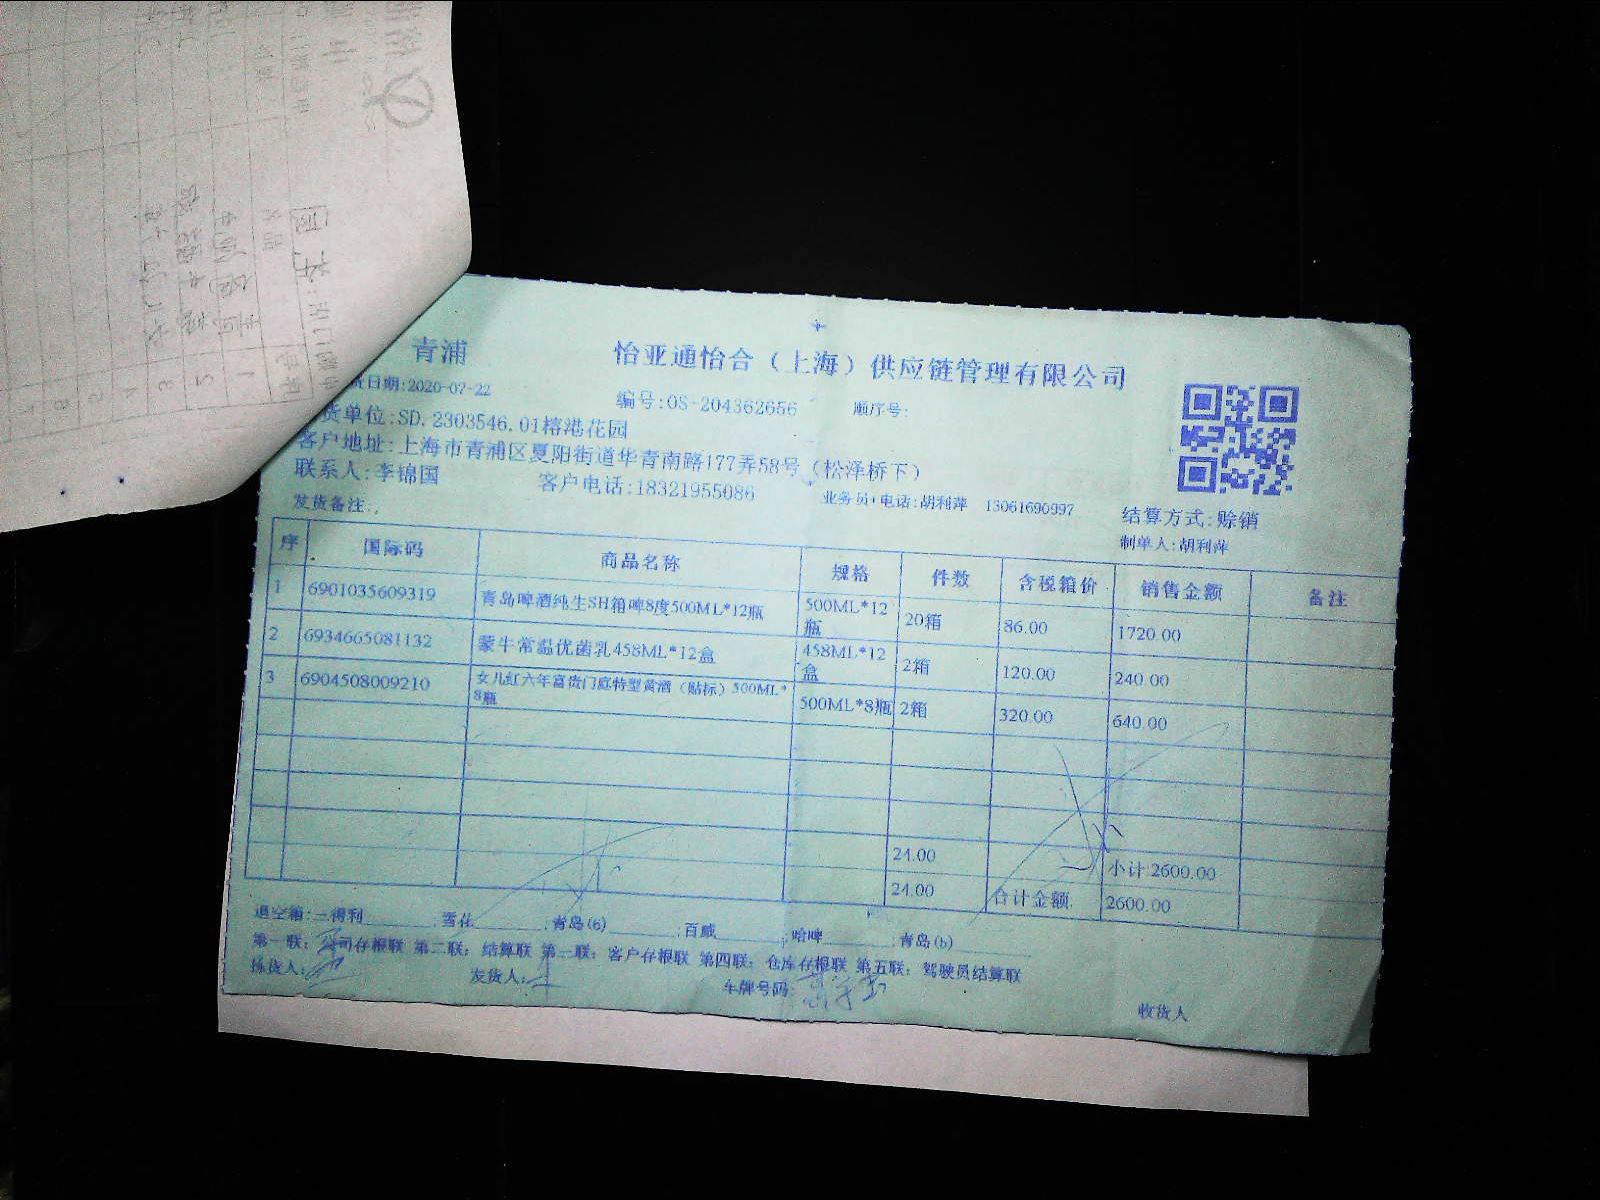 青浦
怡亚通怡合（上海）供应链管理有限公司
货日期:2020-07-22
编号:OS-204362656
顺序号:
货单位:SD.2303546.01榕港花园
客户地址:上海市青浦区夏阳街道华青南路177弄58号（松泽桥下）
联系人:李锦国
客户电话:18321955086
业务员+电话:胡利萍 13061690997
结算方式:赊销
发货备注:,
制单人:胡利萍
序 国际码 商品名称 规格 件数 含税箱价 销售金额 备注
1 6901035609319 青岛啤酒纯生SH箱啤8度500ML*12瓶 500ML*12瓶 20箱 86.00 1720.00
2 6934665081132 蒙牛常温优菌乳458ML*12盒 458ML*12盒 2箱 120.00 240.00
3 6904508009210 女儿红六年富贵门庭特型黄酒（贴标）500ML*8瓶 500ML*8瓶 2箱 320.00 640.00
24.00 小计 2600.00
24.00 合计金额: 2600.00
退空箱:三得利 :雪花 :青岛(6) :百威 :哈啤 :青岛(b)
第一联: 公司存根联 第二联: 结算联 第三联: 客户存根联 第四联: 仓库存根联 第五联: 驾驶员结算联
拣货人: 发货人: 车牌号码: 收货人